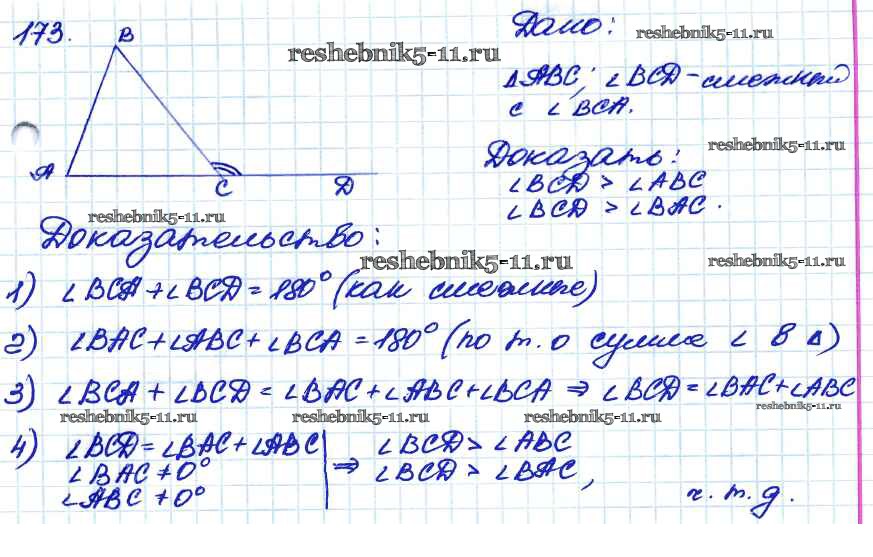 173.
B
A
C
D
reshebnik5-11.ru
Дано:
reshebnik5-11.ru
△ABC; ∠BCD - смежный
с ∠BCA.
reshebnik5-11.ru
Доказать:
∠BCD > ∠ABC
∠BCD > ∠BAC.
reshebnik5-11.ru
Доказательство:
reshebnik5-11.ru
reshebnik5-11.ru
1) ∠BCA + ∠BCD = 180° (как смежные)
2) ∠BAC + ∠ABC + ∠BCA = 180° (по т. о сумме ∠ в △)
3) ∠BCA + ∠BCD = ∠BAC + ∠ABC + ∠BCA ⇒ ∠BCD = ∠BAC + ∠ABC
reshebnik5-11.ru
reshebnik5-11.ru
reshebnik5-11.ru
reshebnik5-11.ru
4) ∠BCD = ∠BAC + ∠ABC
∠BAC ≠ 0°
∠ABC ≠ 0°
⇒ ∠BCD > ∠ABC
∠BCD > ∠BAC,
ч. т. д.